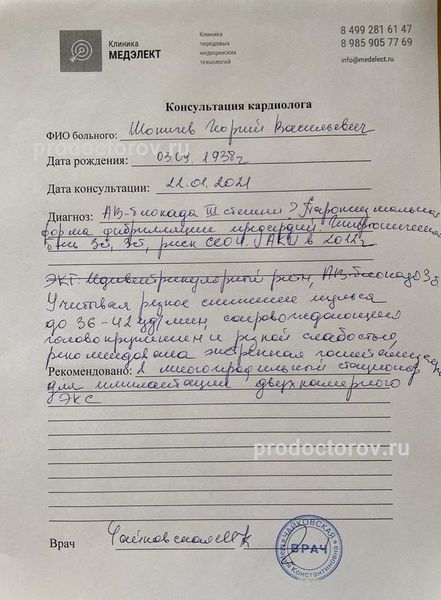 Клиника
МЕДЭЛЕКТ
Клиника
передовых
медицинских
технологий
8 499 281 61 47
8 985 905 77 69
info@medelect.ru
Консультация кардиолога
ФИО больного: Юрий Васильевич
prodoctorov.ru
Дата рождения: 1938г
Дата консультации: 22.01.2021
Диагноз: АВ-блокада III степени? Пароксизмальная
форма фибрилляции предсердий.
риск ССО4. (АКШ в 2018г)
ЭКГ: Идиовентрикулярный ритм, АВ-блокада 3й
Учитывая резкое снижение пульса
до 36-42 уд/мин, сопровождающееся
головокружением и резкой слабостью,
рекомендована экстренная госпитализация
Рекомендовано: в многопрофильный стационар
для имплантации двухкамерного
ЭКС
prodoctorov.ru
Врач Чайковская М К
ЧАЙКОВСКАЯ
ВРАЧ
Константиновна